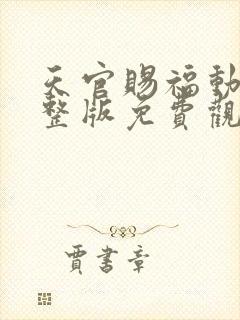 天官賜福動
整版免費觀
賈書章